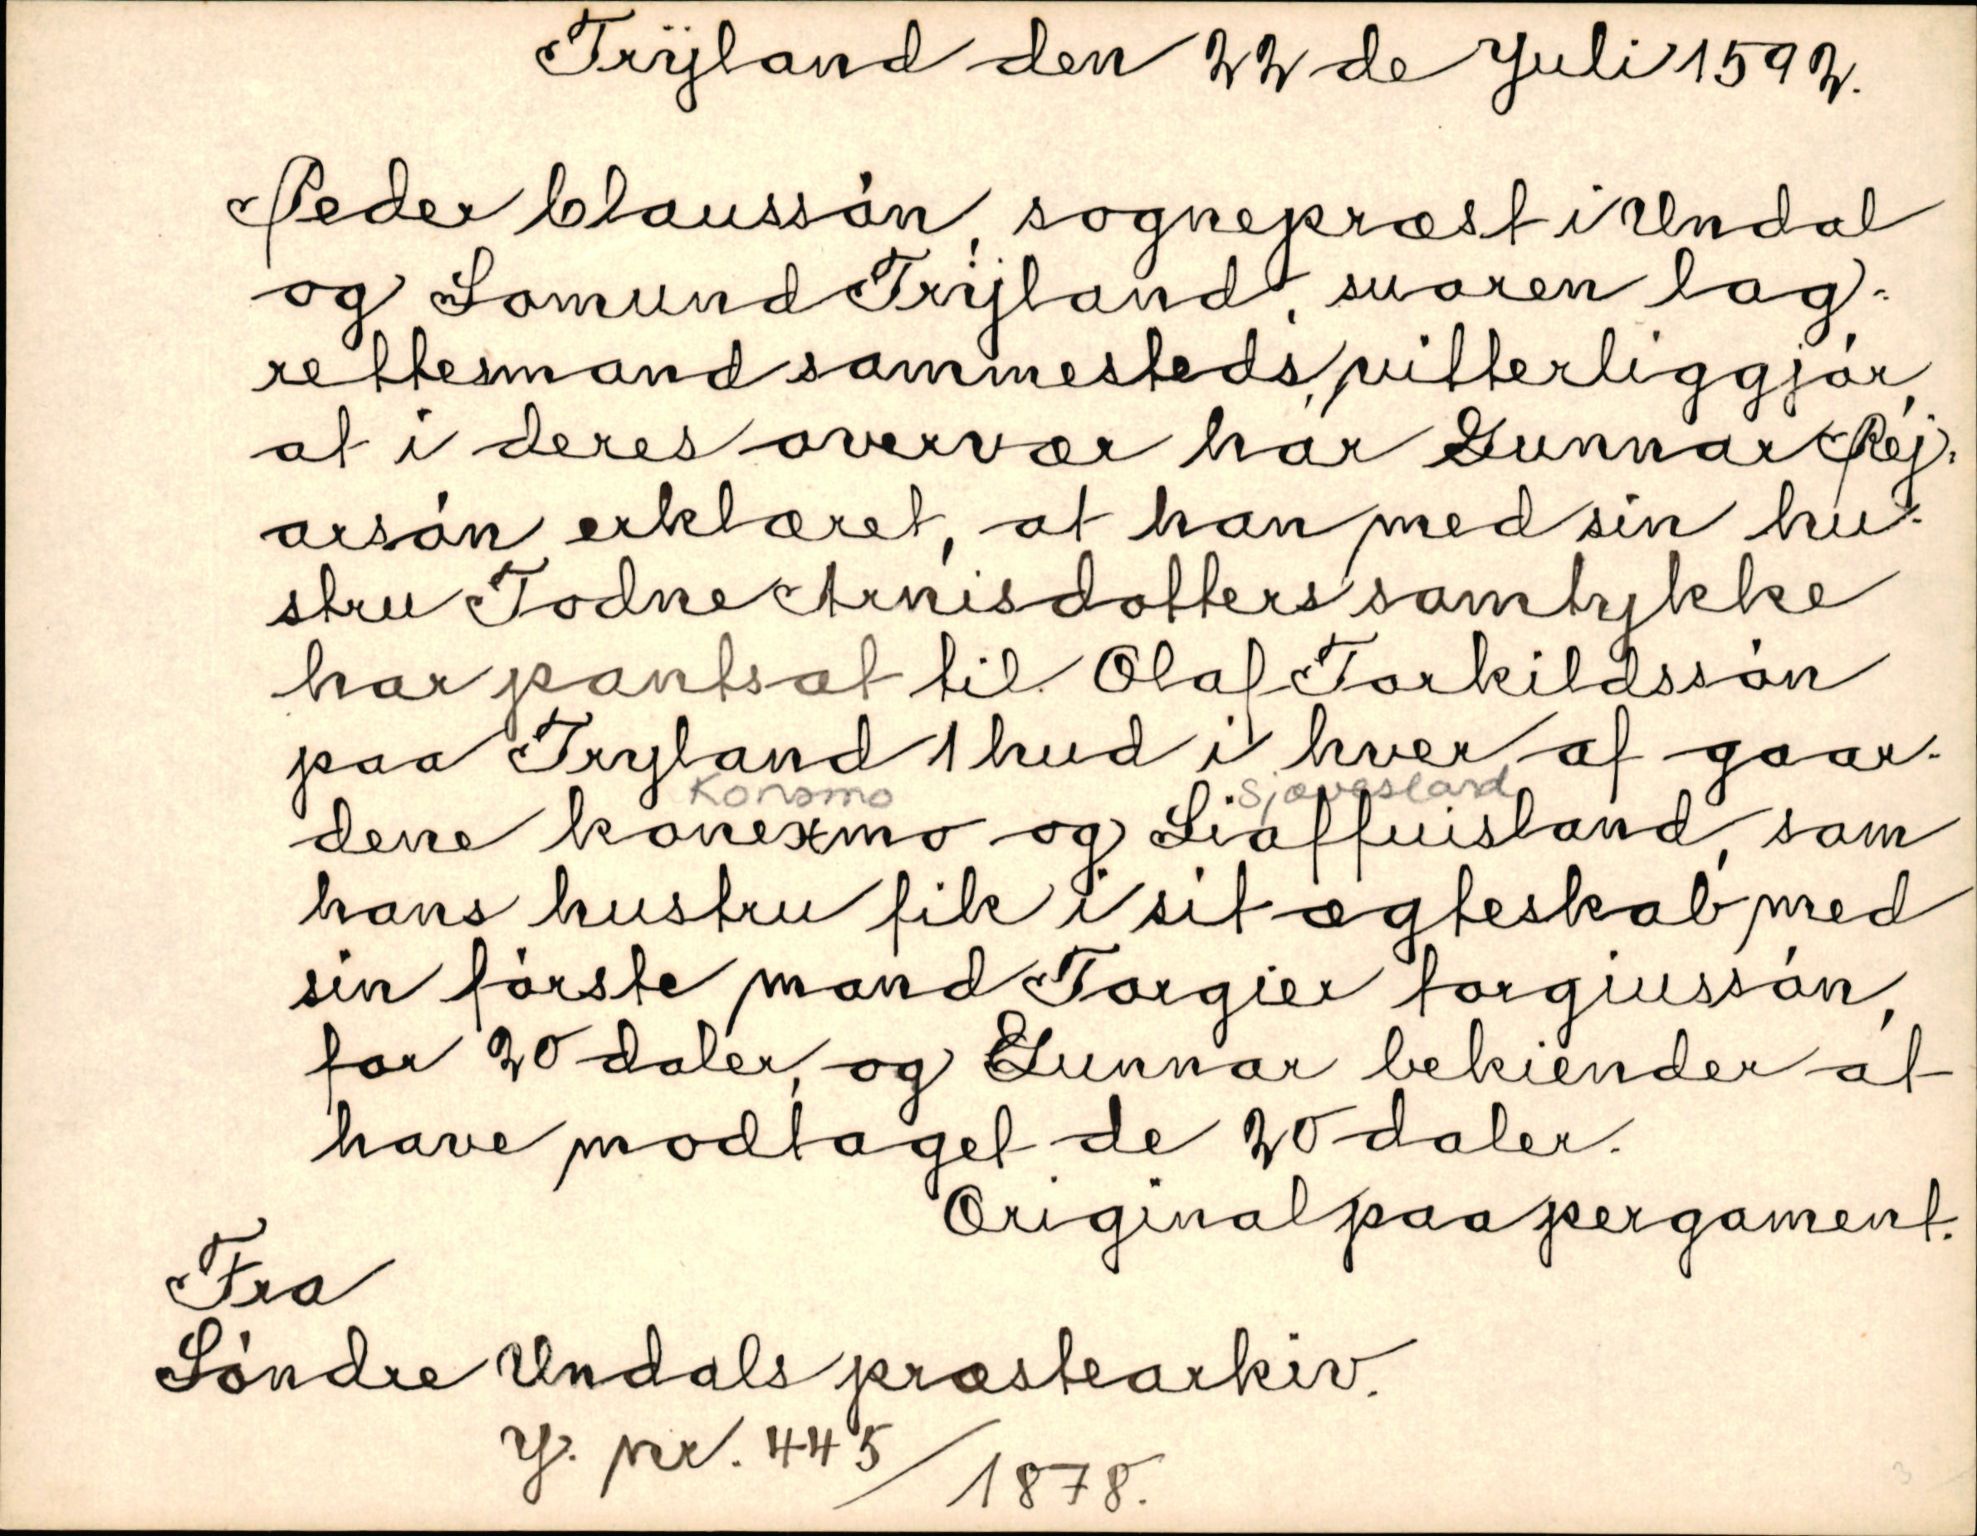 Trÿland den 22 de Juli 1592.
Peder Claussön, sognepræst i Undal
og Somund Trÿland, suoren lag-
rettesmand sammesteds, vitterliggjör,
at i deres overvær har Gunnar Rej-
arsön erklæret, at han med sin hu-
stru Todne Arnisdotters samtykke
har pantsat til Olaf Torkildssön
paa Tryland 1 hud i hver af gaar-
Konsmo Sjøvesland
dene konexmo og Siøffuisland, som
hans hustru fik i sit ægteskab med
sin förste mand Torgier torgiussön,
for 20 daler, og Gunnar bekiender at
have modtaget de 20 daler.
Original paa pergament.
Fra
Söndre Undals præstearkiv.
J. nr. 445/1878.
3